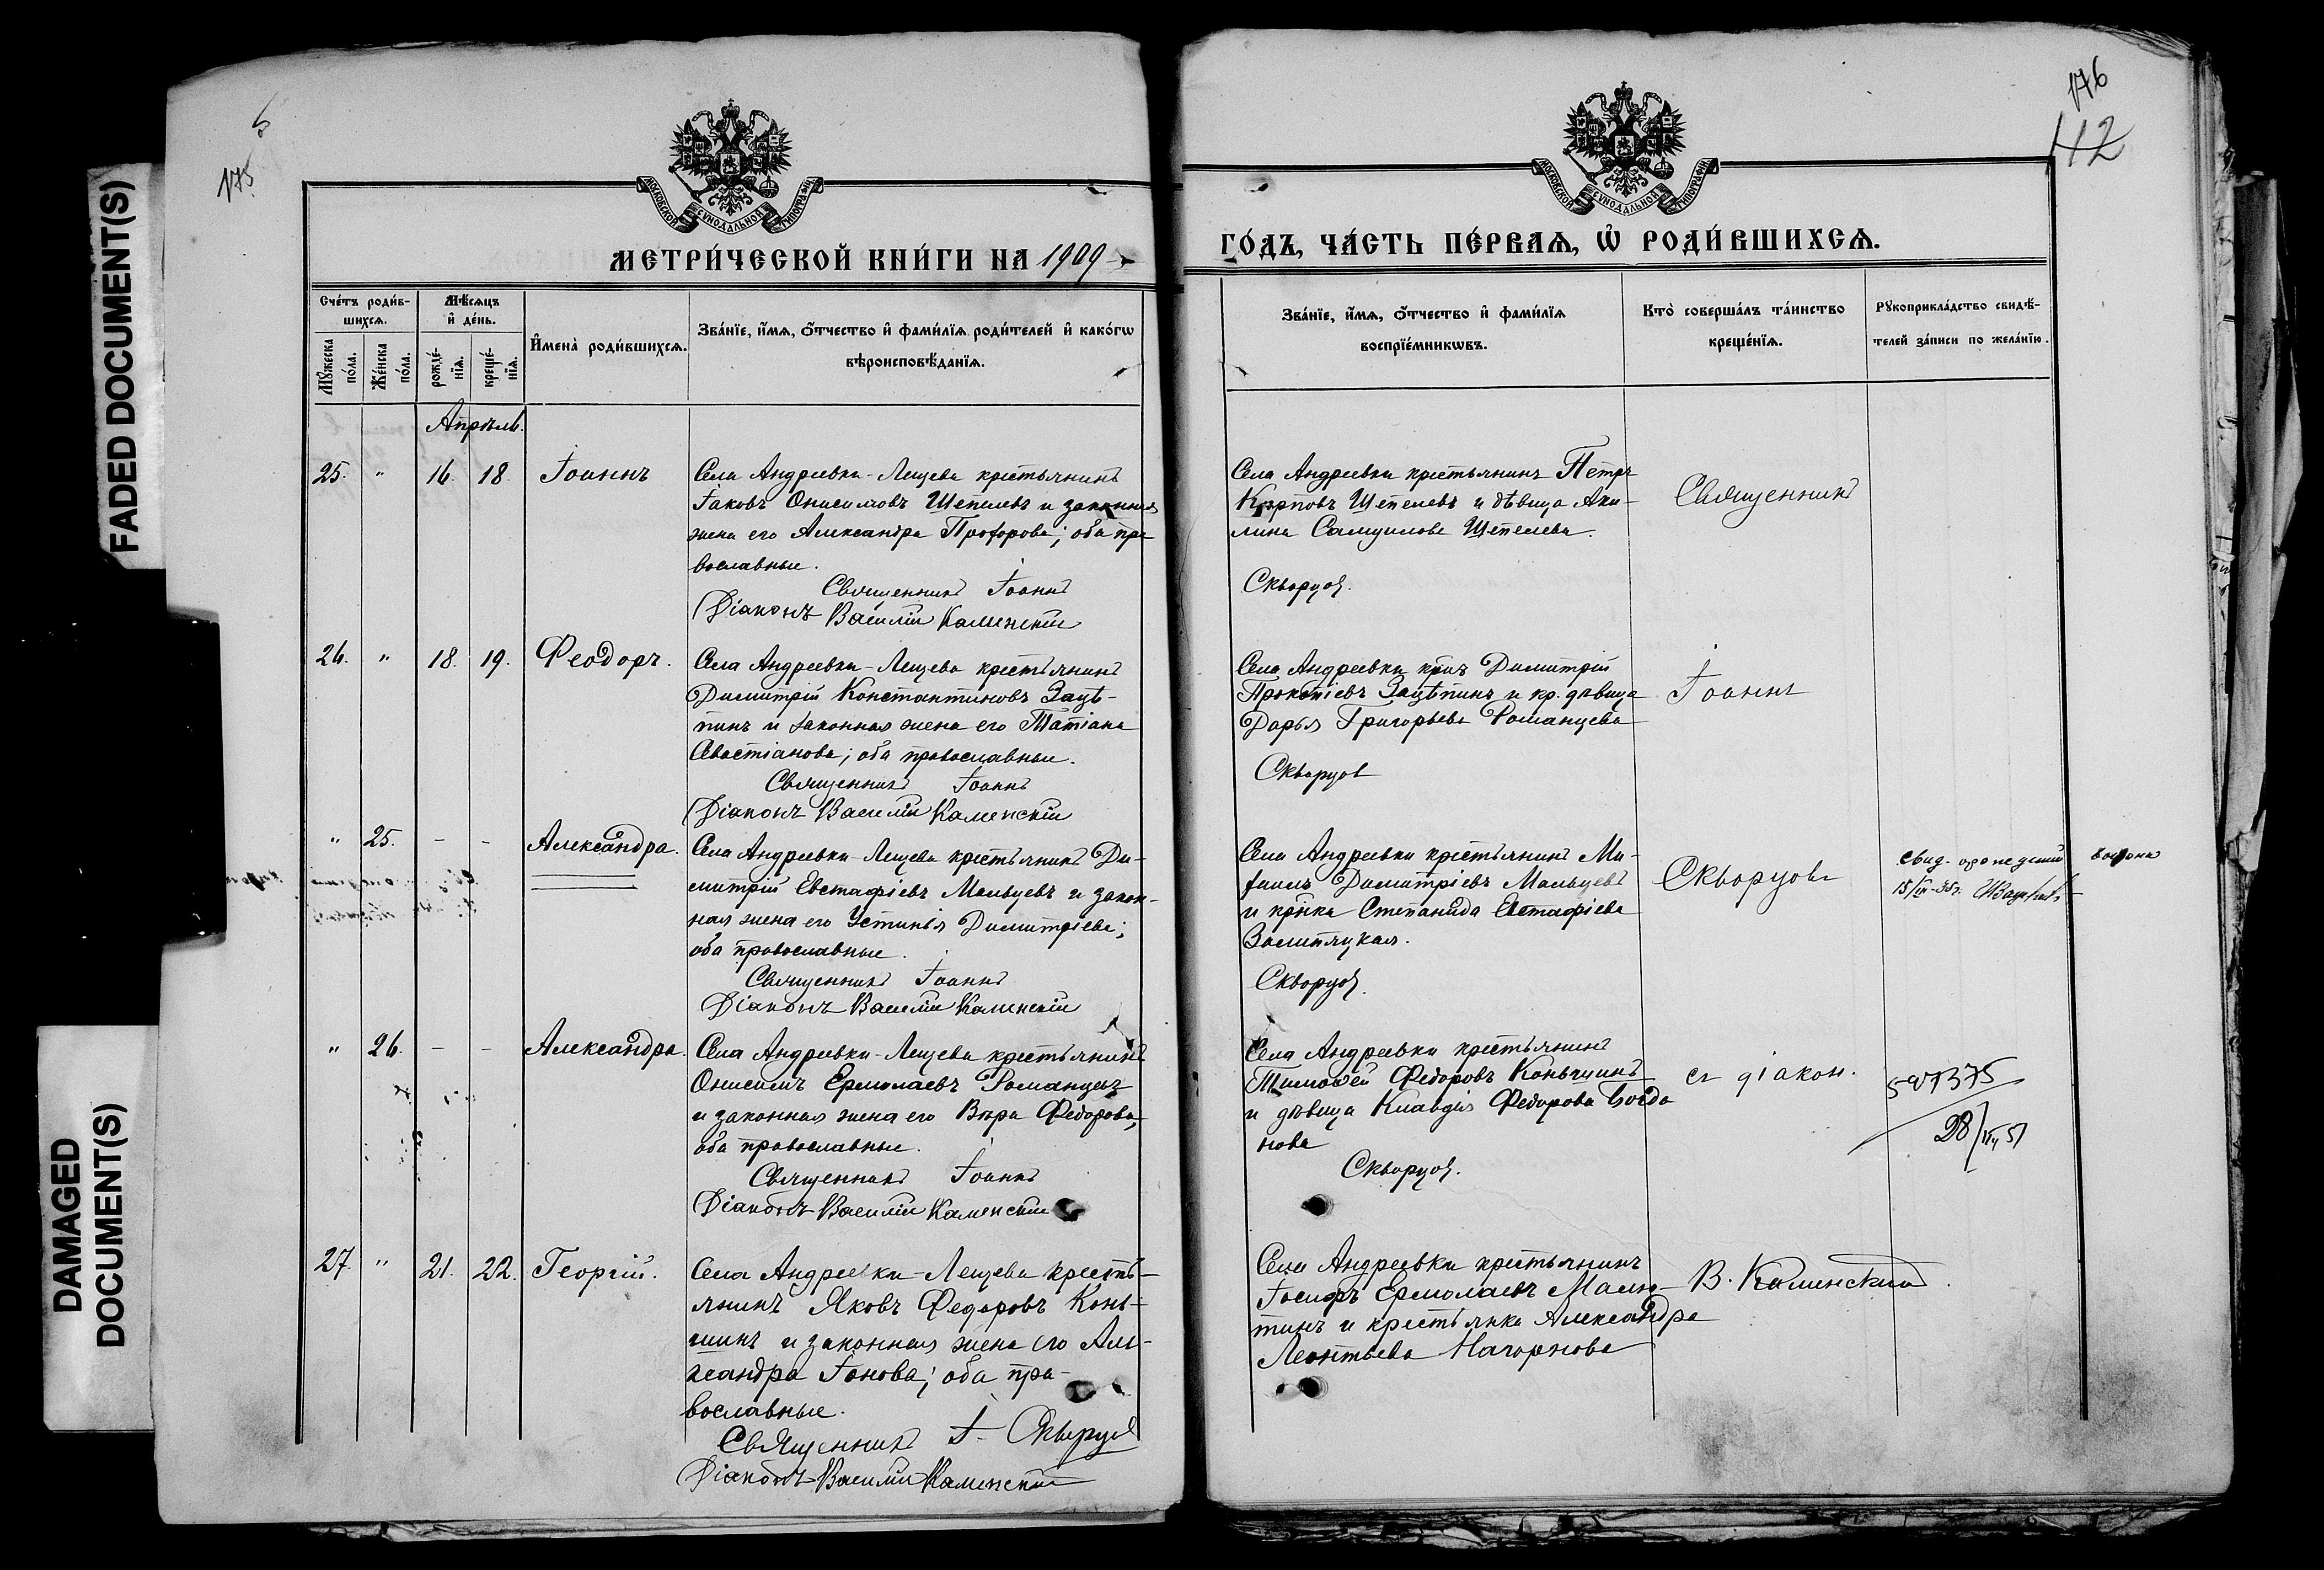 FADED DOCUMENT(S)
DAMAGED
DOCUMENT(S)
175
МОСКОВСКОЙ СУНОДАЛЬНОЙ ТИПОГРАФІИ
МЕТРИ́ЧЕСКОЙ КНИ́ГИ НА 1909
Сче́тъ роди́в-
шихсѧ.
Мꙋ́жеска
по́ла.
Же́нска
по́ла.
Мѣ́сѧцъ
и҆ де́нь.
рожде́-
нїѧ.
креще́-
нїѧ.
И҆мена̀ роди́вшихсѧ.
Зва́нїе, и҆́мѧ, ѻ҆́тчество и҆ фами́лїѧ роди́телей и҆ како́гѡ
вѣроисповѣ́данїѧ.
Апрѣль.
25. " 16. 18. Іоаннъ
Села Андреевки-Лещева крестьянинъ
Іаковъ Онисимовъ Шепелевъ и законная
жена его Александра Прохорова; оба пра
вославные.
Священникъ Іоаннъ
Діаконъ Василій Каменскій
26. " 18. 19. Феодоръ.
Села Андреевки-Лещева крестьянинъ
Димитрій Константиновъ Зацѣ-
пинъ и законная жена его Татіана
Севастіанова; оба православные.
Священникъ Іоаннъ
Діаконъ Василій Каменскій
" 25. - - Александра.
Села Андреевки-Лещева крестьянинъ Ди-
митрій Евстафіевъ Мальцевъ и закон-
ная жена его Устинья Димитріева;
оба православные.
Священникъ Іоаннъ
Діаконъ Василій Каменскій
" 26. - - Александра.
Села Андреевки-Лещева крестьянинъ
Онисимъ Ермолаевъ Романцевъ
и законная жена его Вѣра Федорова;
оба православные.
Священникъ Іоаннъ
Діаконъ Василій Каменскій
27. " 21. 22. Георгій.
Села Андреевки-Лещева кресть-
янинъ Яковъ Федоровъ Конь-
шинъ и законная жена его Але-
ксандра Іонова; оба пра-
вославные.
Священникъ І. Скворцов
Діаконъ Василій Каменскій
176
112
МОСКОВСКОЙ СУНОДАЛЬНОЙ ТИПОГРАФІИ
ГО́ДЪ, ЧА́СТЬ ПЕ́РВАѦ, Ѡ҆ РОДИ́ВШИХСѦ.
Зва́нїе, и҆́мѧ, ѻ҆́тчество и҆ фами́лїѧ
воспрїе́мникѡвъ.
Кто̀ соверша́лъ та́инство
креще́нїѧ.
Рꙋкоприкла́дство свидѣ́-
телей за́писи по жела́нїю.
Села Андреевки крестьянинъ Петръ
Карповъ Шепелевъ и дѣвица Аки-
лина Самуилова Шепелева.
Скворцов.
Священникъ
Села Андреевки кр-нъ Димитрій
Прокопіевъ Зацѣпинъ и кр. дѣвица
Дарья Григорьева Романцева
Скворцов
Іоаннъ
Села Андреевки крестьянинъ Ми-
хаилъ Димитріевъ Мальцевъ
и кр-нка Степанида Евстафіева
Скворцов.
Скворцовъ
свид.
Села Андреевки крестьянинъ
Тимоѳей Федоровъ Коньшинъ
и дѣвица Клавдія Федорова Богда
нова
Скворцов.
съ діакон.
28/IV 51
Села Андреевки крестьянинъ
Іосифъ Ермолаевъ Малю-
тинъ и крестьянка Александра
Леонтьева Нагорнова
В. Каменскій.